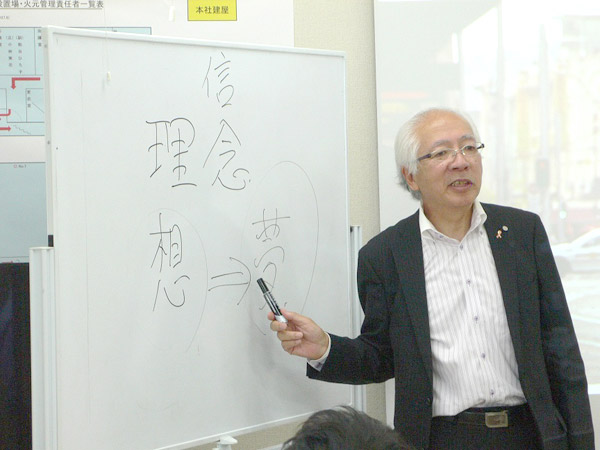 置場・火元管理責任者一覧表
本社建屋
信
理念
想⇒夢